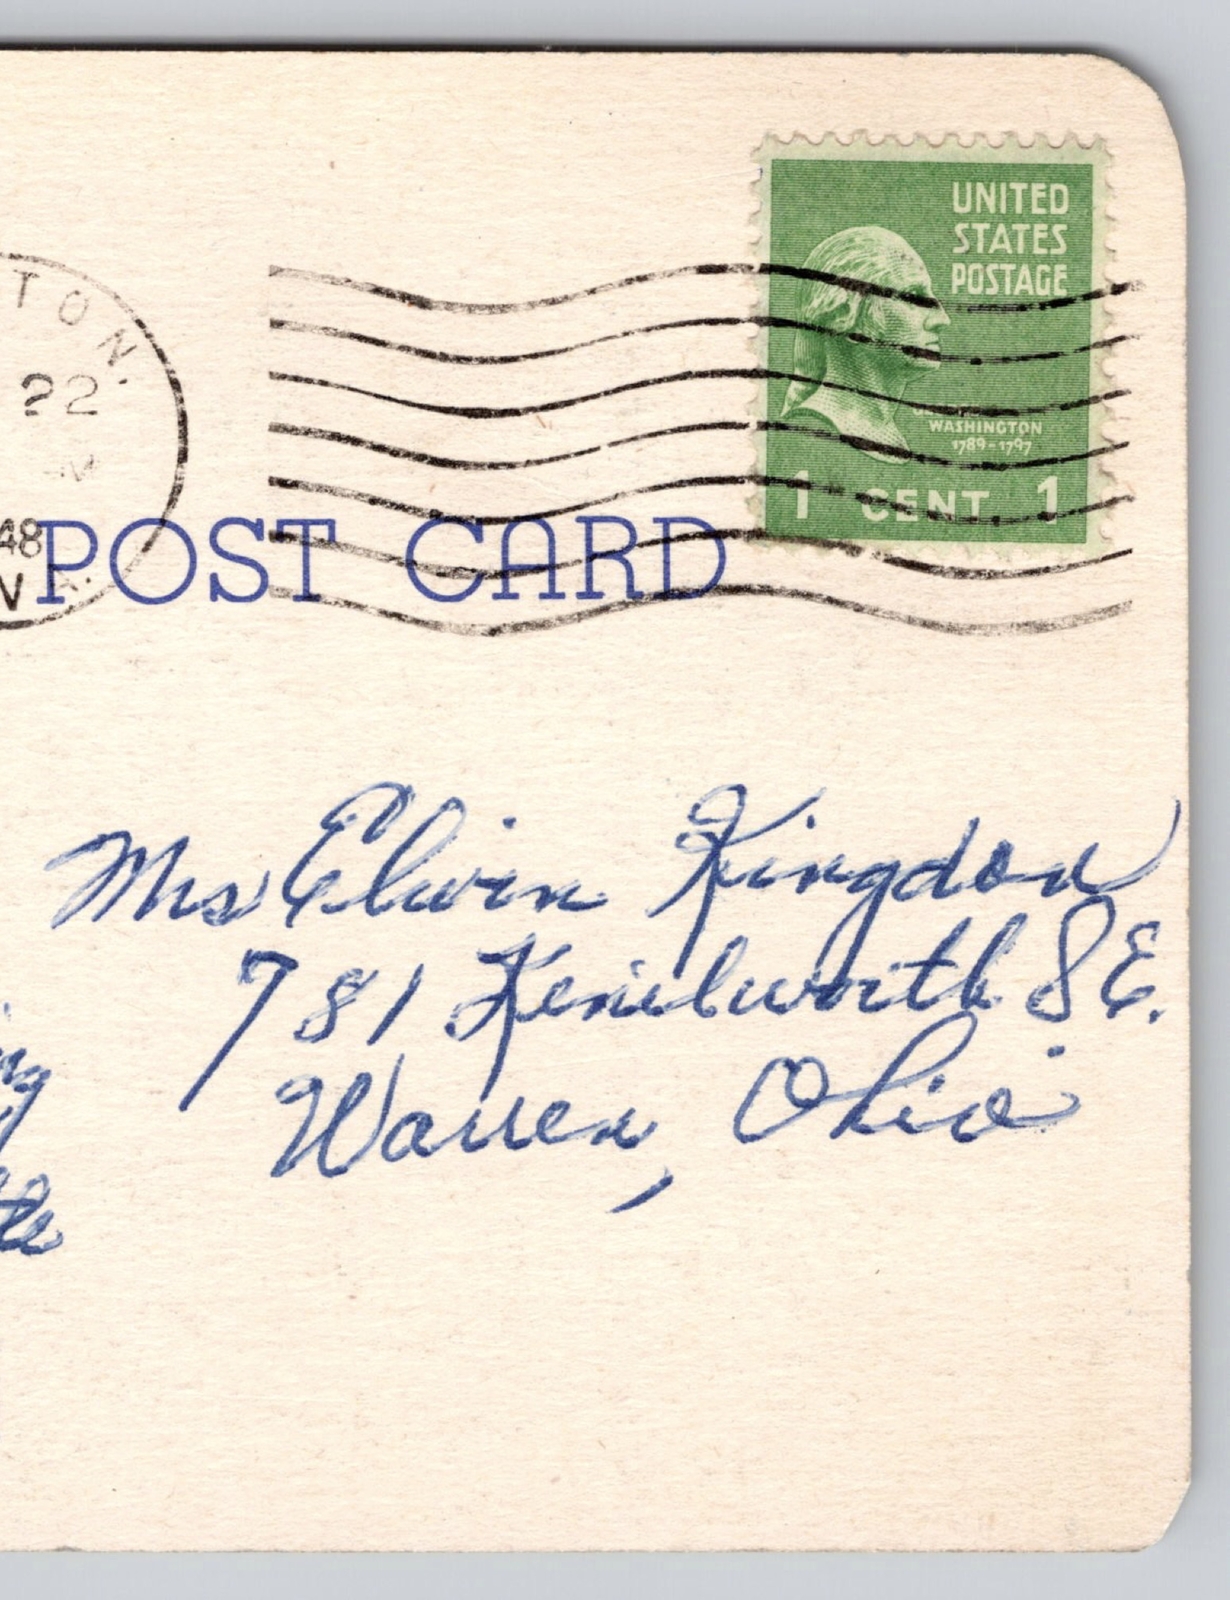 UNITED
STATES
POSTAGE
TON.
22
WASHINGTON
1789-1797
1 CENT 1
48
POST CARD
Mrs Elwin Kingdon
781 Kenilworth S E.
Warren, Ohio